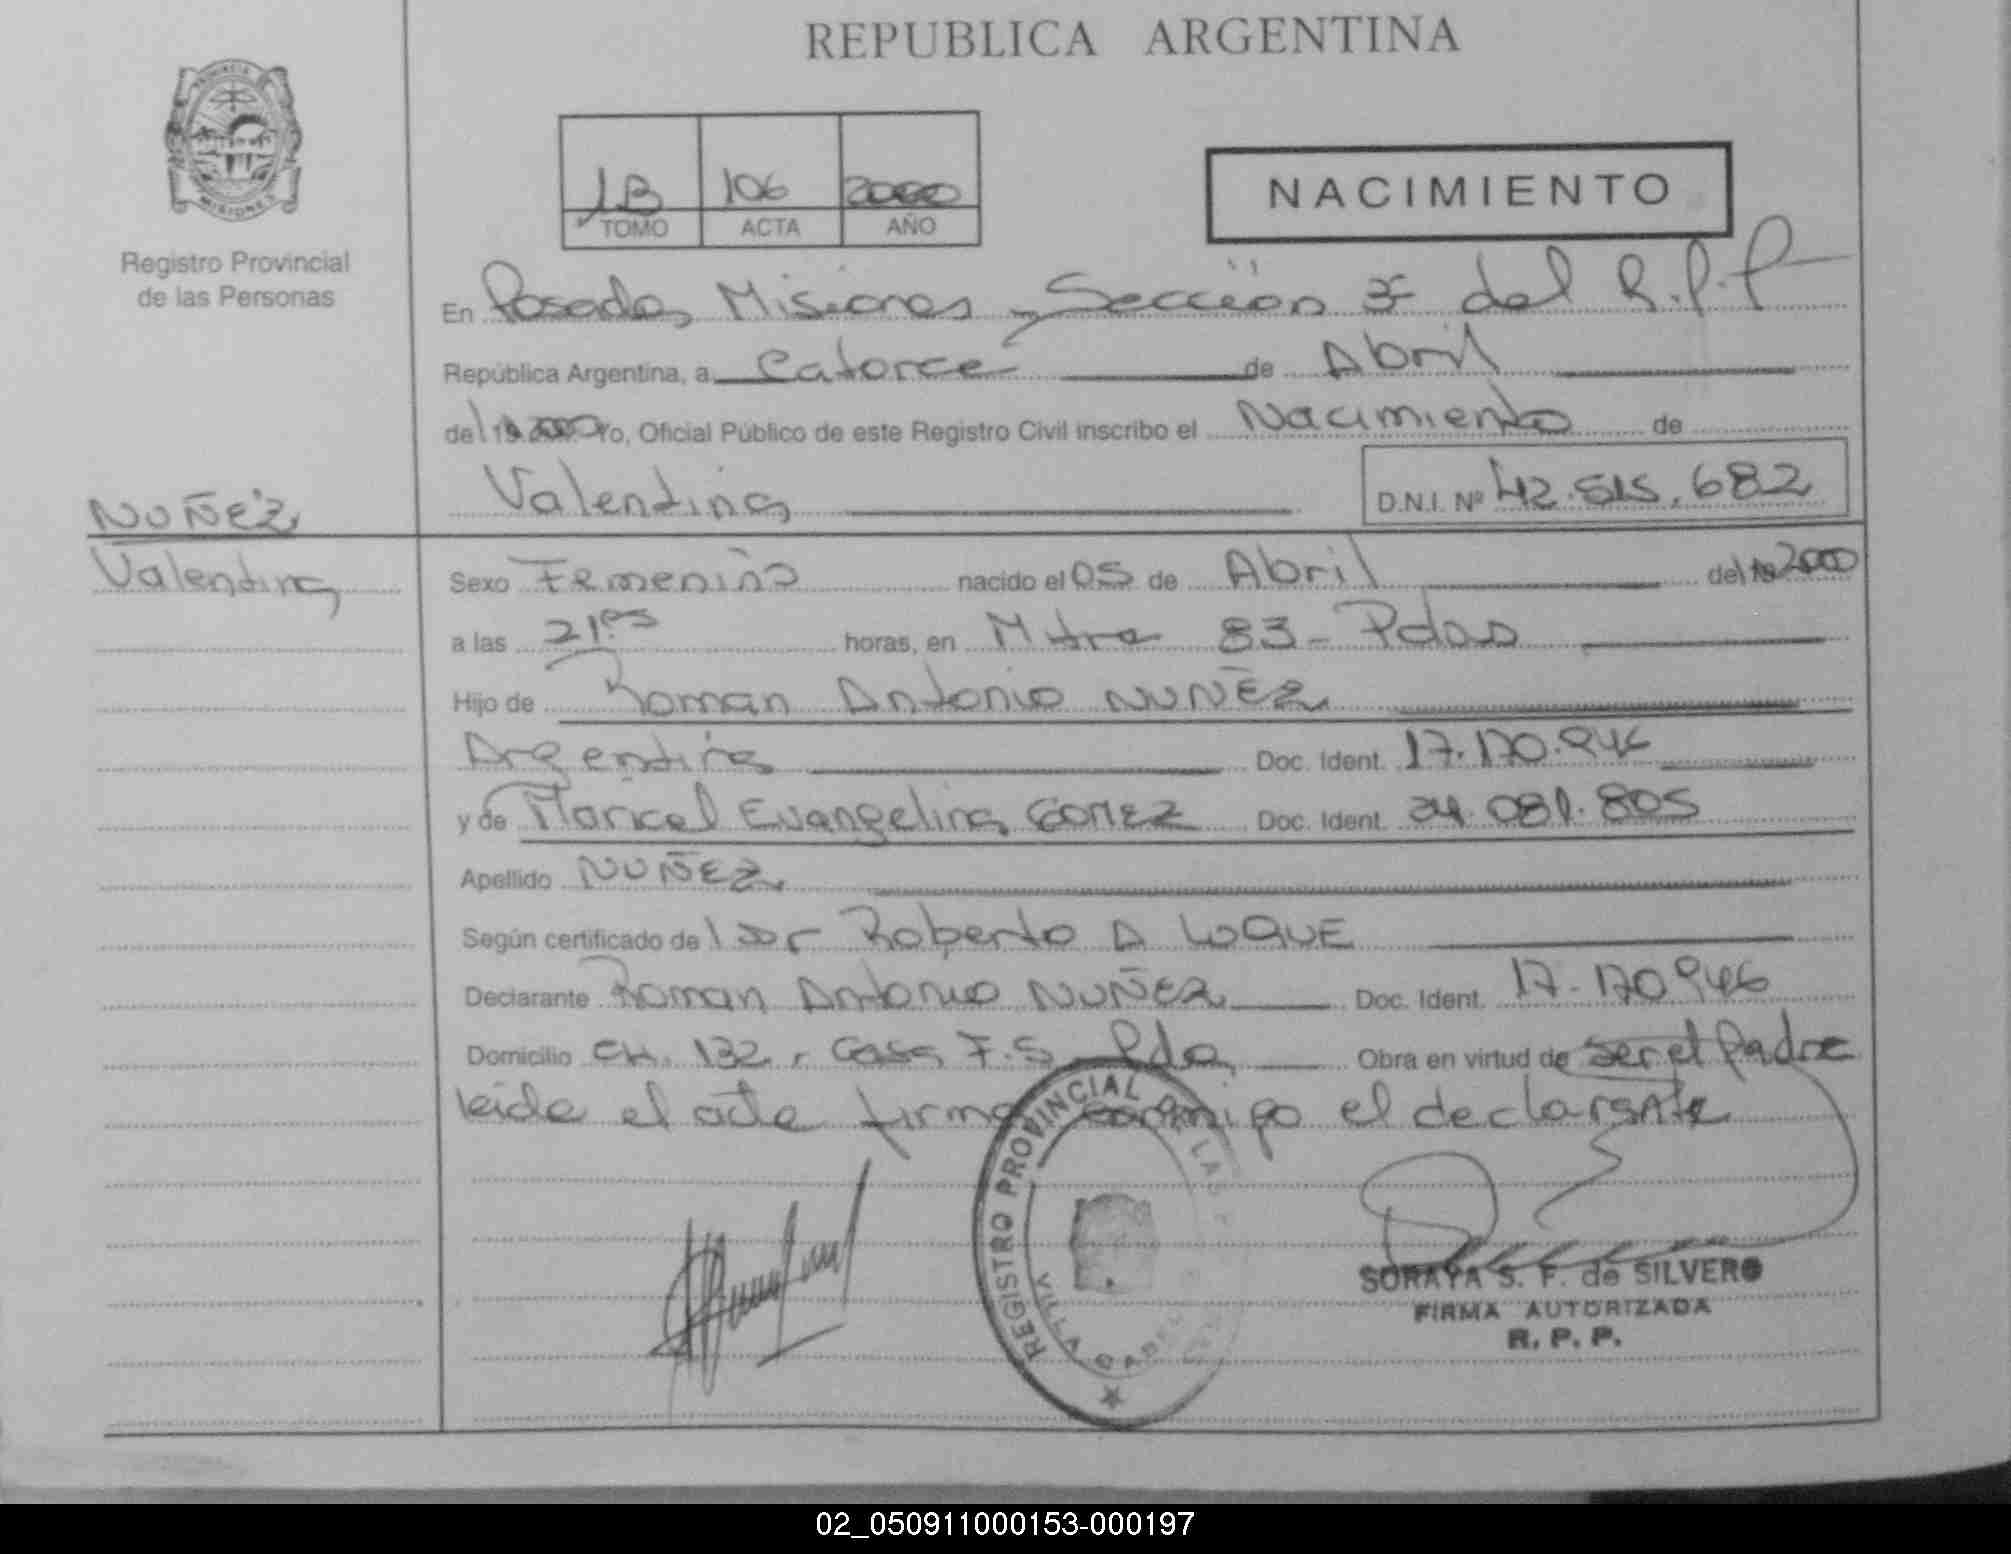 REPUBLICA ARGENTINA
PROVINCIA
MISIONES
Registro Provincial
de las Personas
1B 106 2000
TOMO ACTA AÑO
NACIMIENTO
En Posadas, Misiones, Sección 3ª del R.P.P
República Argentina, a Catorce de Abril
del 2000 Yo, Oficial Público de este Registro Civil inscribo el Nacimiento de
Valentina D.N.I. Nº 42.515.682
NUÑEZ
Valentina
Sexo Femenino nacido el 05 de Abril del 2000
a las 21 horas, en Mitre 83 - Pdas
Hijo de Roman Antonio NUÑEZ
Argentina Doc. Ident. 17.170.946
y de Maricel Evangelina GOMEZ Doc. Ident. 24.081.805
Apellido NUÑEZ
Según certificado del Dr Roberto A LUQUE
Declarante Roman Antonio NUÑEZ Doc. Ident. 17.170946
Domicilio CH. 132, Casa F.S Pdas Obra en virtud de ser el Padre
leida el acta firma conmigo el declarante
REGISTRO PROVINCIAL DE LAS
VILLA CABEL
SORAYA S. F. de SILVERO
FIRMA AUTORIZADA
R. P. P.
02_050911000153-000197